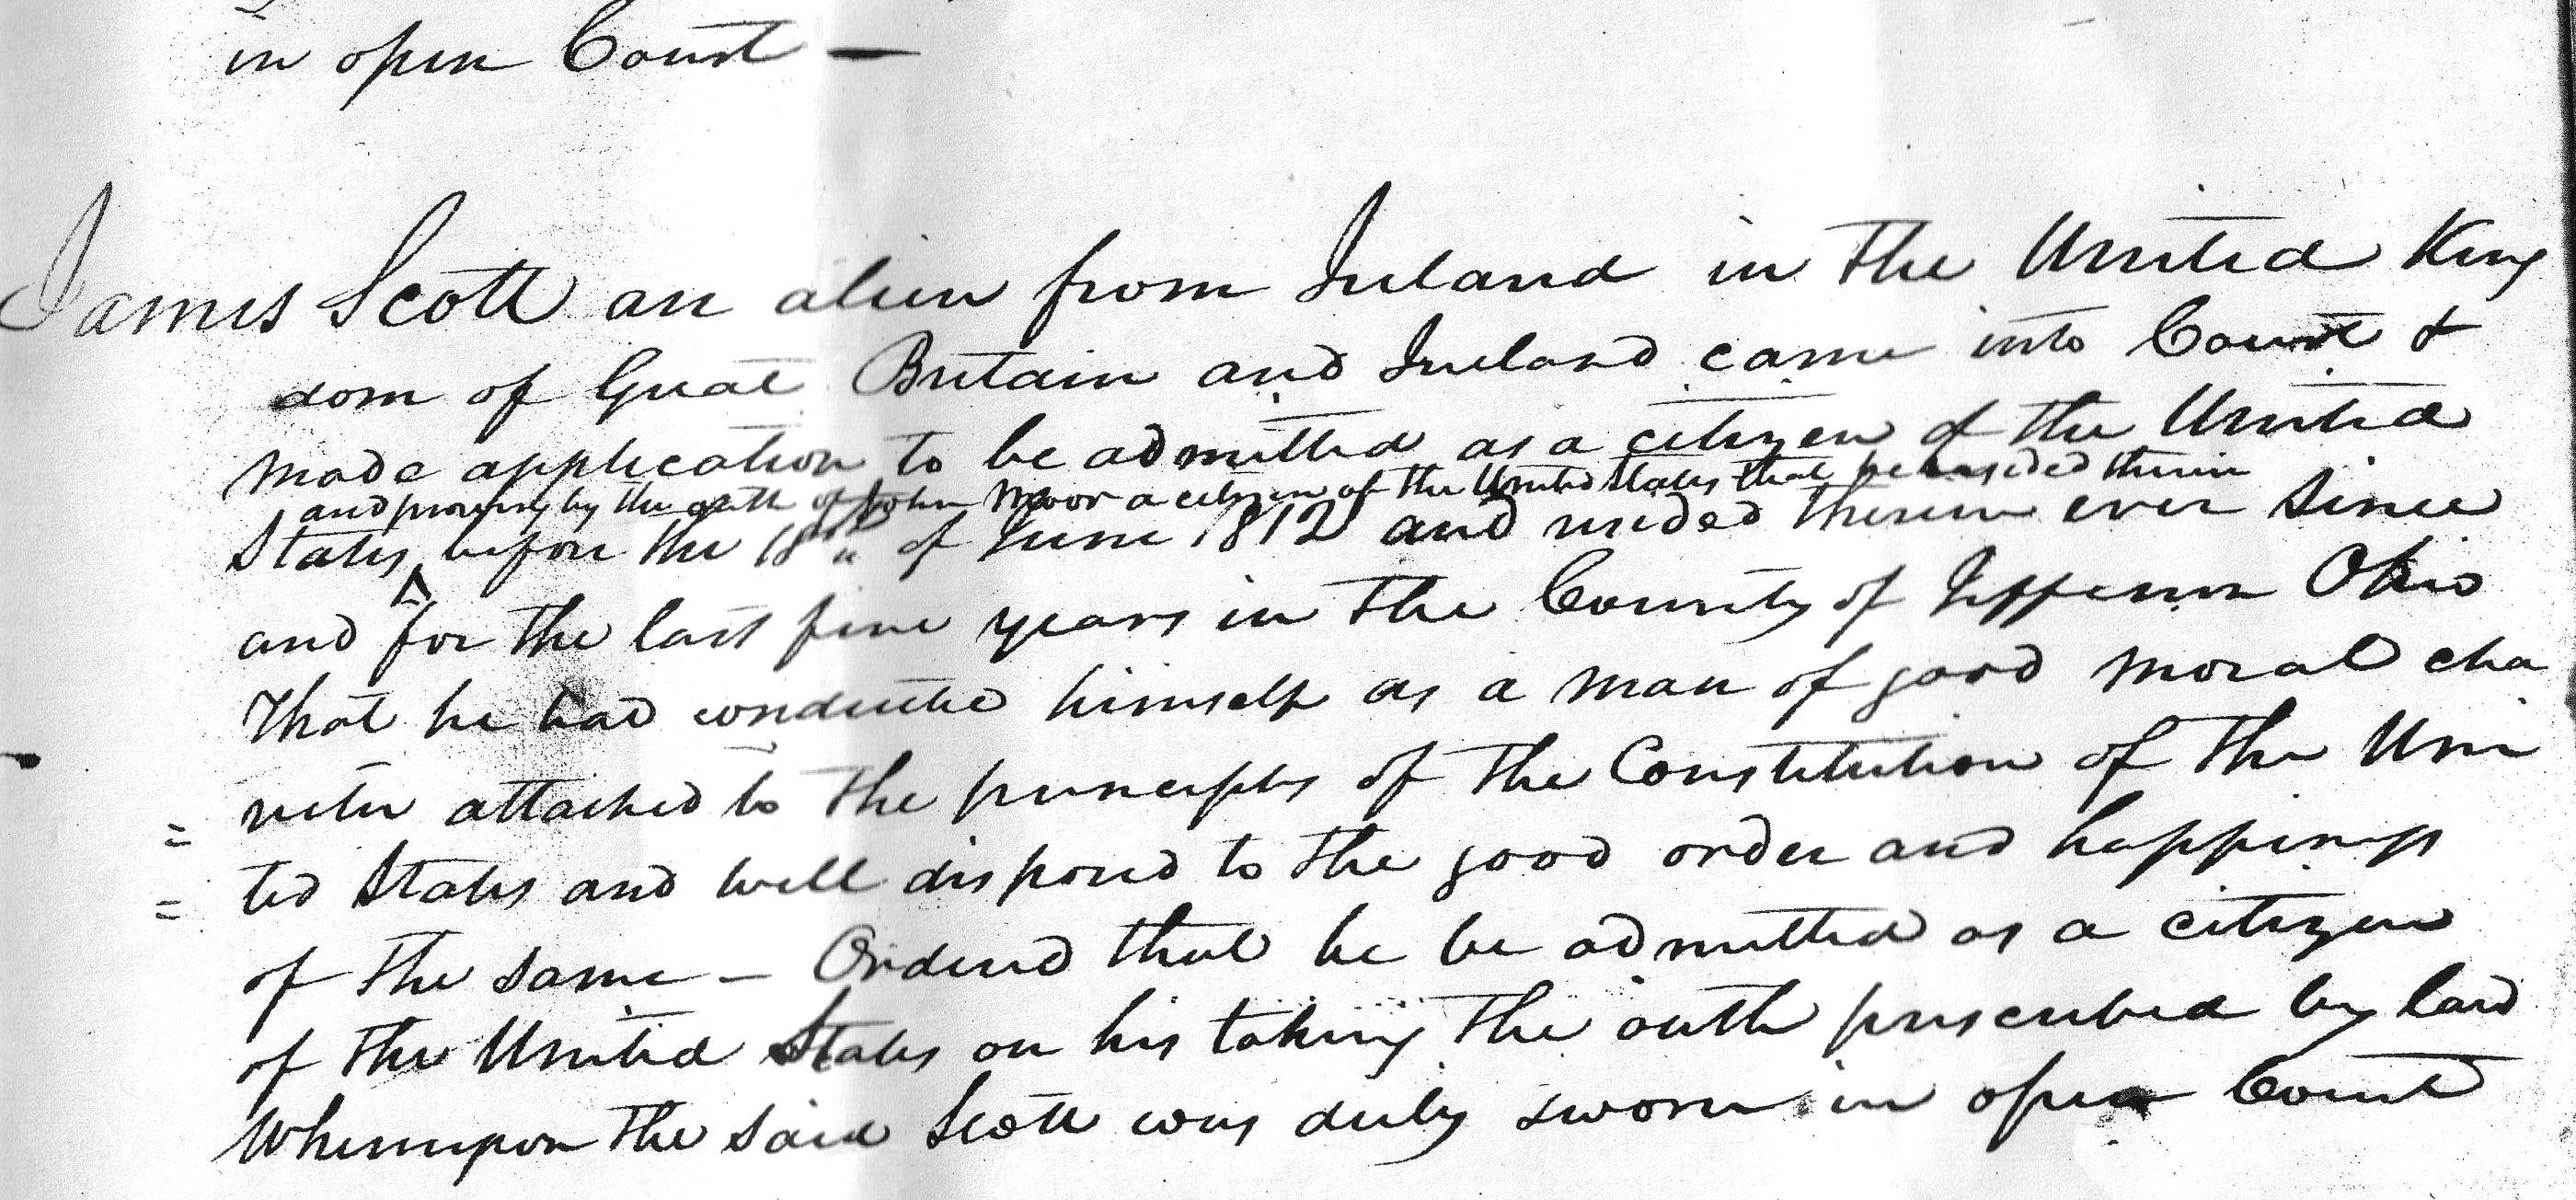 in open Court —
James Scott an alien from Ireland in the United King
dom of Great Britain and Ireland came into Court &
made application to be admitted as a citizen of the United
and proving by the oath of John Moor a citizen of the United States that he resided therein
States before the 18th of June 1812 and resided therein ever since
and for the last five years in the County of Jefferson Ohio
that he had conducted himself as a man of good moral cha
= racter attached to the principles of the Constitution of the Uni
= ted States and well disposed to the good order and happiness
of the same — Ordered that he be admitted as a citizen
of the United States on his taking the oath prescribed by law
Whereupon the said Scott was duly sworn in open Court